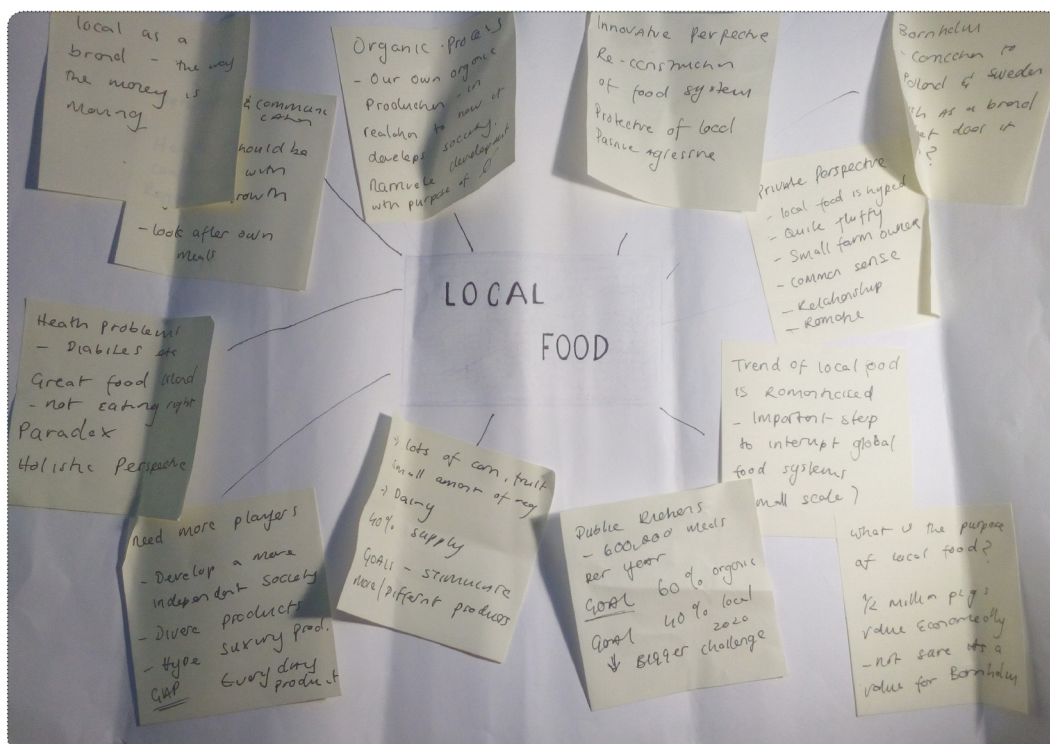 local as a
brand - the way
the money is
moving
& commune
cation
hould be
with
rowth
- look after own
meals
Organic Process
- Our own organic
Production - in
realation to how it
develops society.
development
with purpose of
Innovative Perpective
Re-construction
of food system
Protective of local
Passive Agressive
Bornholm
- Connection to
Polland & Sweden
as a brand
does it
?
Private Perspective
- local food is hyped
- Quite fluffy
- Small farm owner
- common sense
- Relationship
- Romantic
LOCAL
FOOD
Heath Problems
- Diabites etc
Great food island
- not eating right
Paradox
Holistic Perspective
Trend of local food
is Romanticised
- Important step
to interupt global
food systems
mall scale?
need more players
- Develop a more
independent society
- Diverse products
- Hype luxury prod.
GAP Every day
product
lots of corn, fruit
small amount of veg
Dairy
40% supply
GOALS - stimulate
More/Different produces
Public Kichens
- 600,000 meals
per year
GOAL 60% organic
GOAL 40% local
2020
↓ Bigger challenge
what is the purpose
of local food?
1/2 million pigs
value Economically
- not sure its a
value for Bornholm